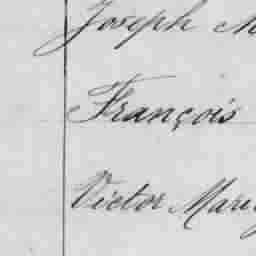 Joseph M
François
Victor Marie